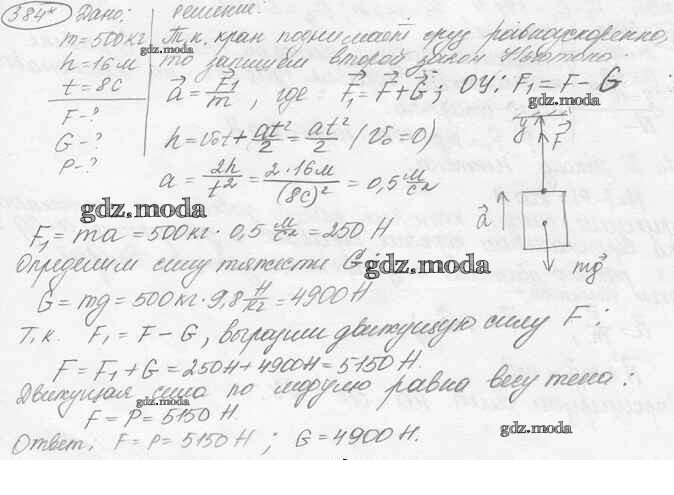 384* Дано:
m = 500 кг
h = 16 м
t = 8 c
F - ?
G - ?
P - ?
Решение:
Т.к. кран поднимает груз равноускоренно,
gdz.moda
то запишем второй закон Ньютона:
a⃗ = F⃗₁/m, где F⃗₁ = F⃗ + G⃗; ОУ: F₁ = F - G
gdz.moda
h = v₀t + at²/2 = at²/2 (v₀ = 0)
a = 2h/t² = 2·16м/(8c)² = 0,5 м/c²
y F⃗
a⃗
mg⃗
gdz.moda
F₁ = ma = 500 кг · 0,5 м/c² = 250 Н
Определим силу тяжести G:
gdz.moda
G = mg = 500 кг · 9,8 Н/кг = 4900 Н
Т.к. F₁ = F - G, выразим движущую силу F:
F = F₁ + G = 250 Н + 4900 Н = 5150 Н.
Движущая сила по модулю равна весу тела:
gdz.moda
F = P = 5150 Н.
Ответ: F = P = 5150 Н; G = 4900 Н.
gdz.moda